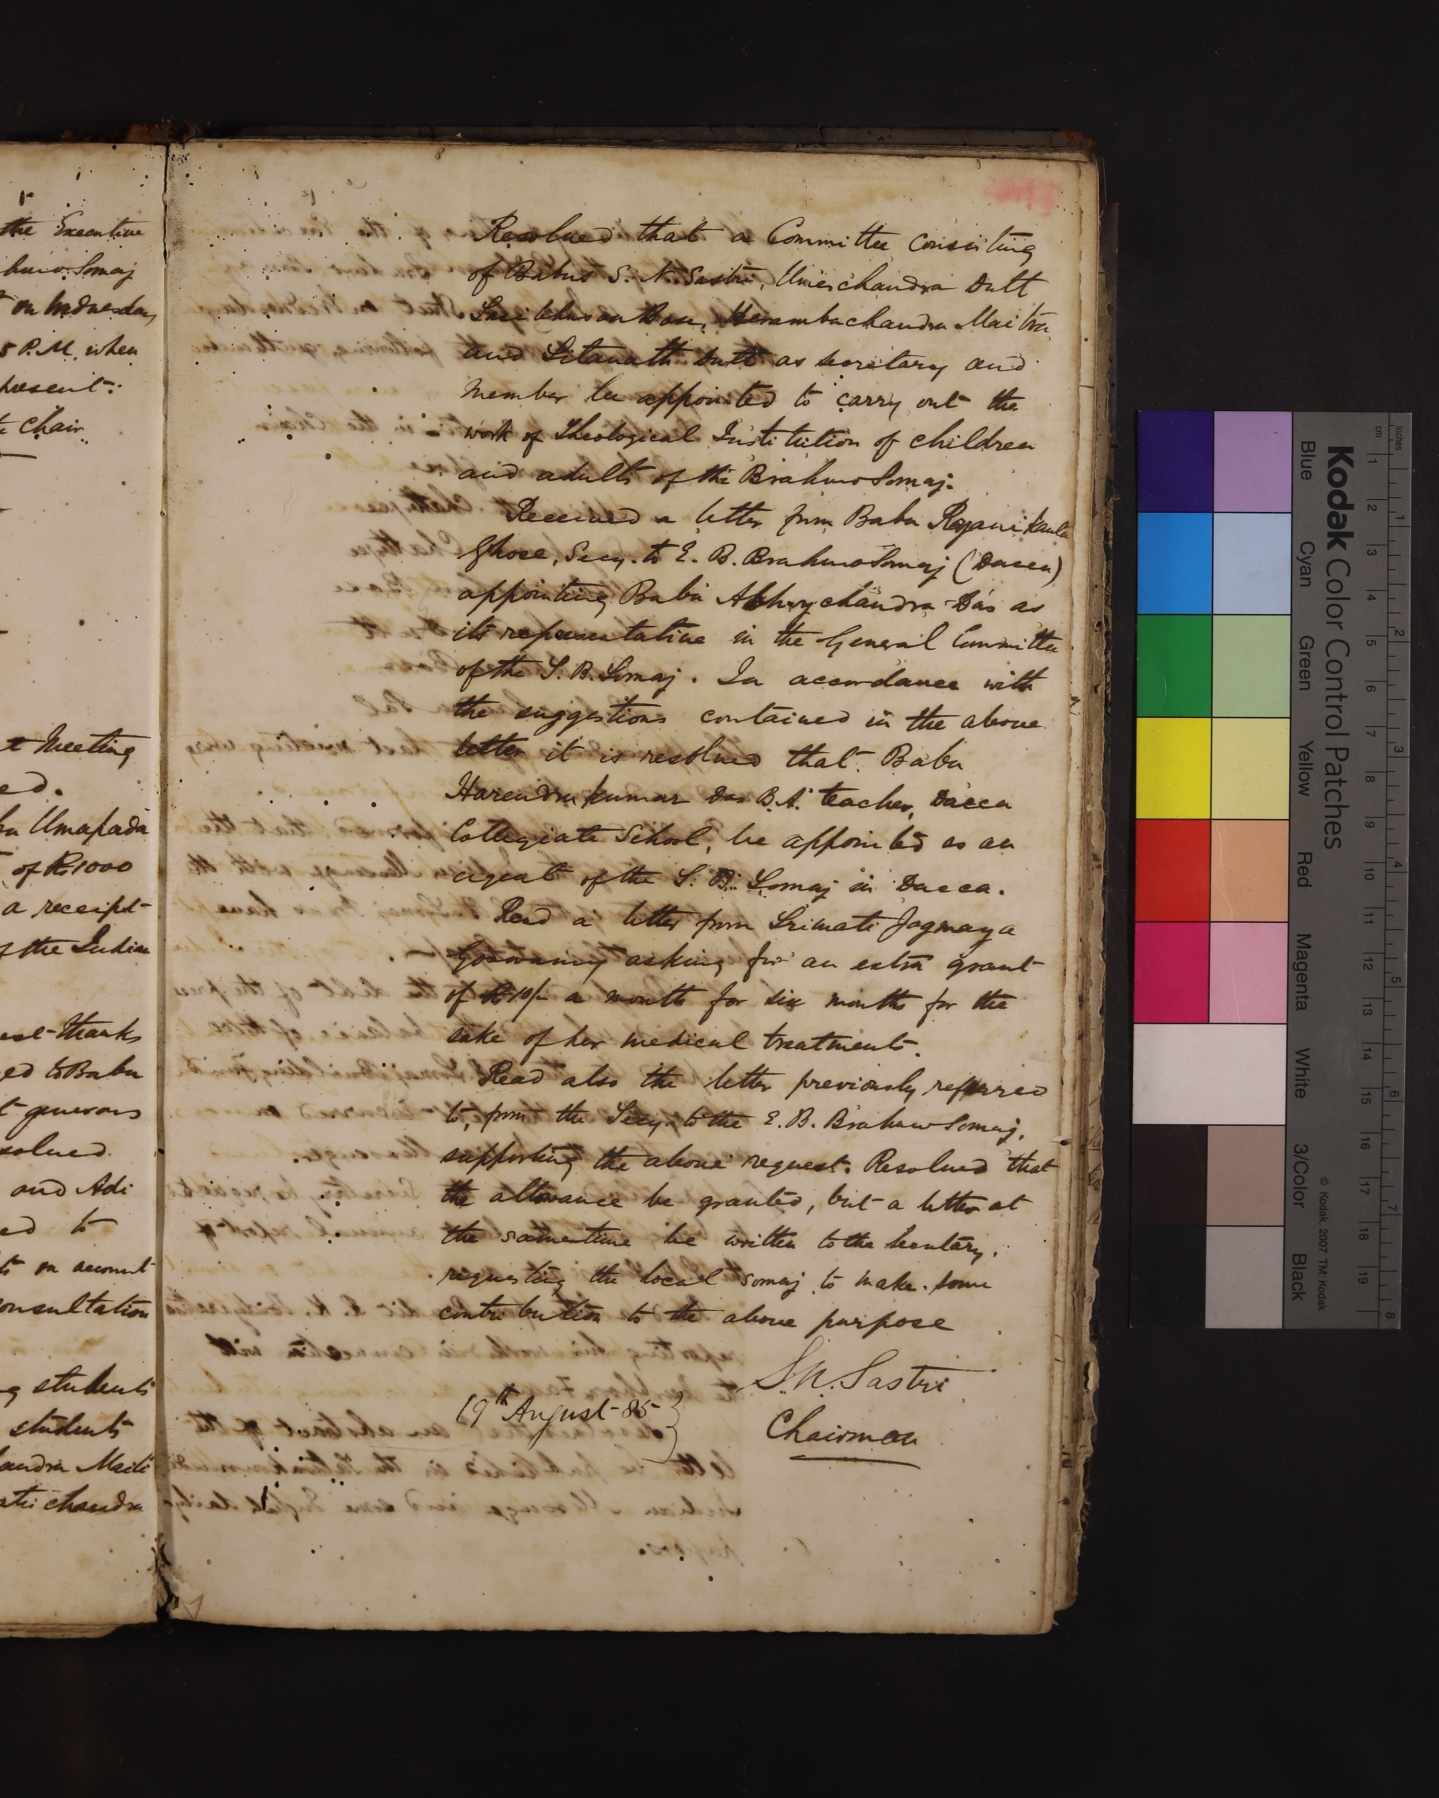 the Executive
on Wednesday
5 P.M. when
present:
Chair
Meeting
Umapada
of Rs 1000
a receipt
of the Indian
thanks
to Babu
generous
and Adi
to
on account
consultation
students
students
chandra
Resolved that a Committee consisting
of Babus S. N. Sastri, Umeschandra Dutt
Sasibhusan Bose, Herambachandra Maitra
and Sitanath Dutt as secretary and
member be appointed to carry out the
work of Theological Institution of children
and adults of the Brahmo Somaj.
Received a letter from Babu Rajanikanta
Ghose, Secy. to E. B. Brahmo Somaj (Dacca)
appointing Babu Abhoychandra Das as
its representative in the General Committee
of the S. B. Somaj. In accordance with
the suggestions contained in the above
letter it is resolved that Babu
Harendra kumar Das B.A. teacher, Dacca
Collegiate School, be appointed as an
agent of the S. B. Somaj in Dacca.
Read a letter from Srimati Jogmaya
Goswamy asking for an extra grant
of Rs 10/- a month for six months for the
sake of her medical treatment.
Read also the letter previously referred
to, from the Secy. to the E. B. Brahmo Somaj,
supporting the above request. Resolved that
the allowance be granted, but a letter at
the same time be written to the Secretary,
requesting the local somaj to make some
contribution to the above purpose
S. N. Sastri
19th August 85
Chairman
Kodak Color Control Patches
Blue Cyan Green Yellow Red Magenta White 3/Color Black
© Kodak, 2007 TM: Kodak
inches 1 2 3 4 5 6 7 8
cm 1 2 3 4 5 6 7 8 9 10 11 12 13 14 15 16 17 18 19